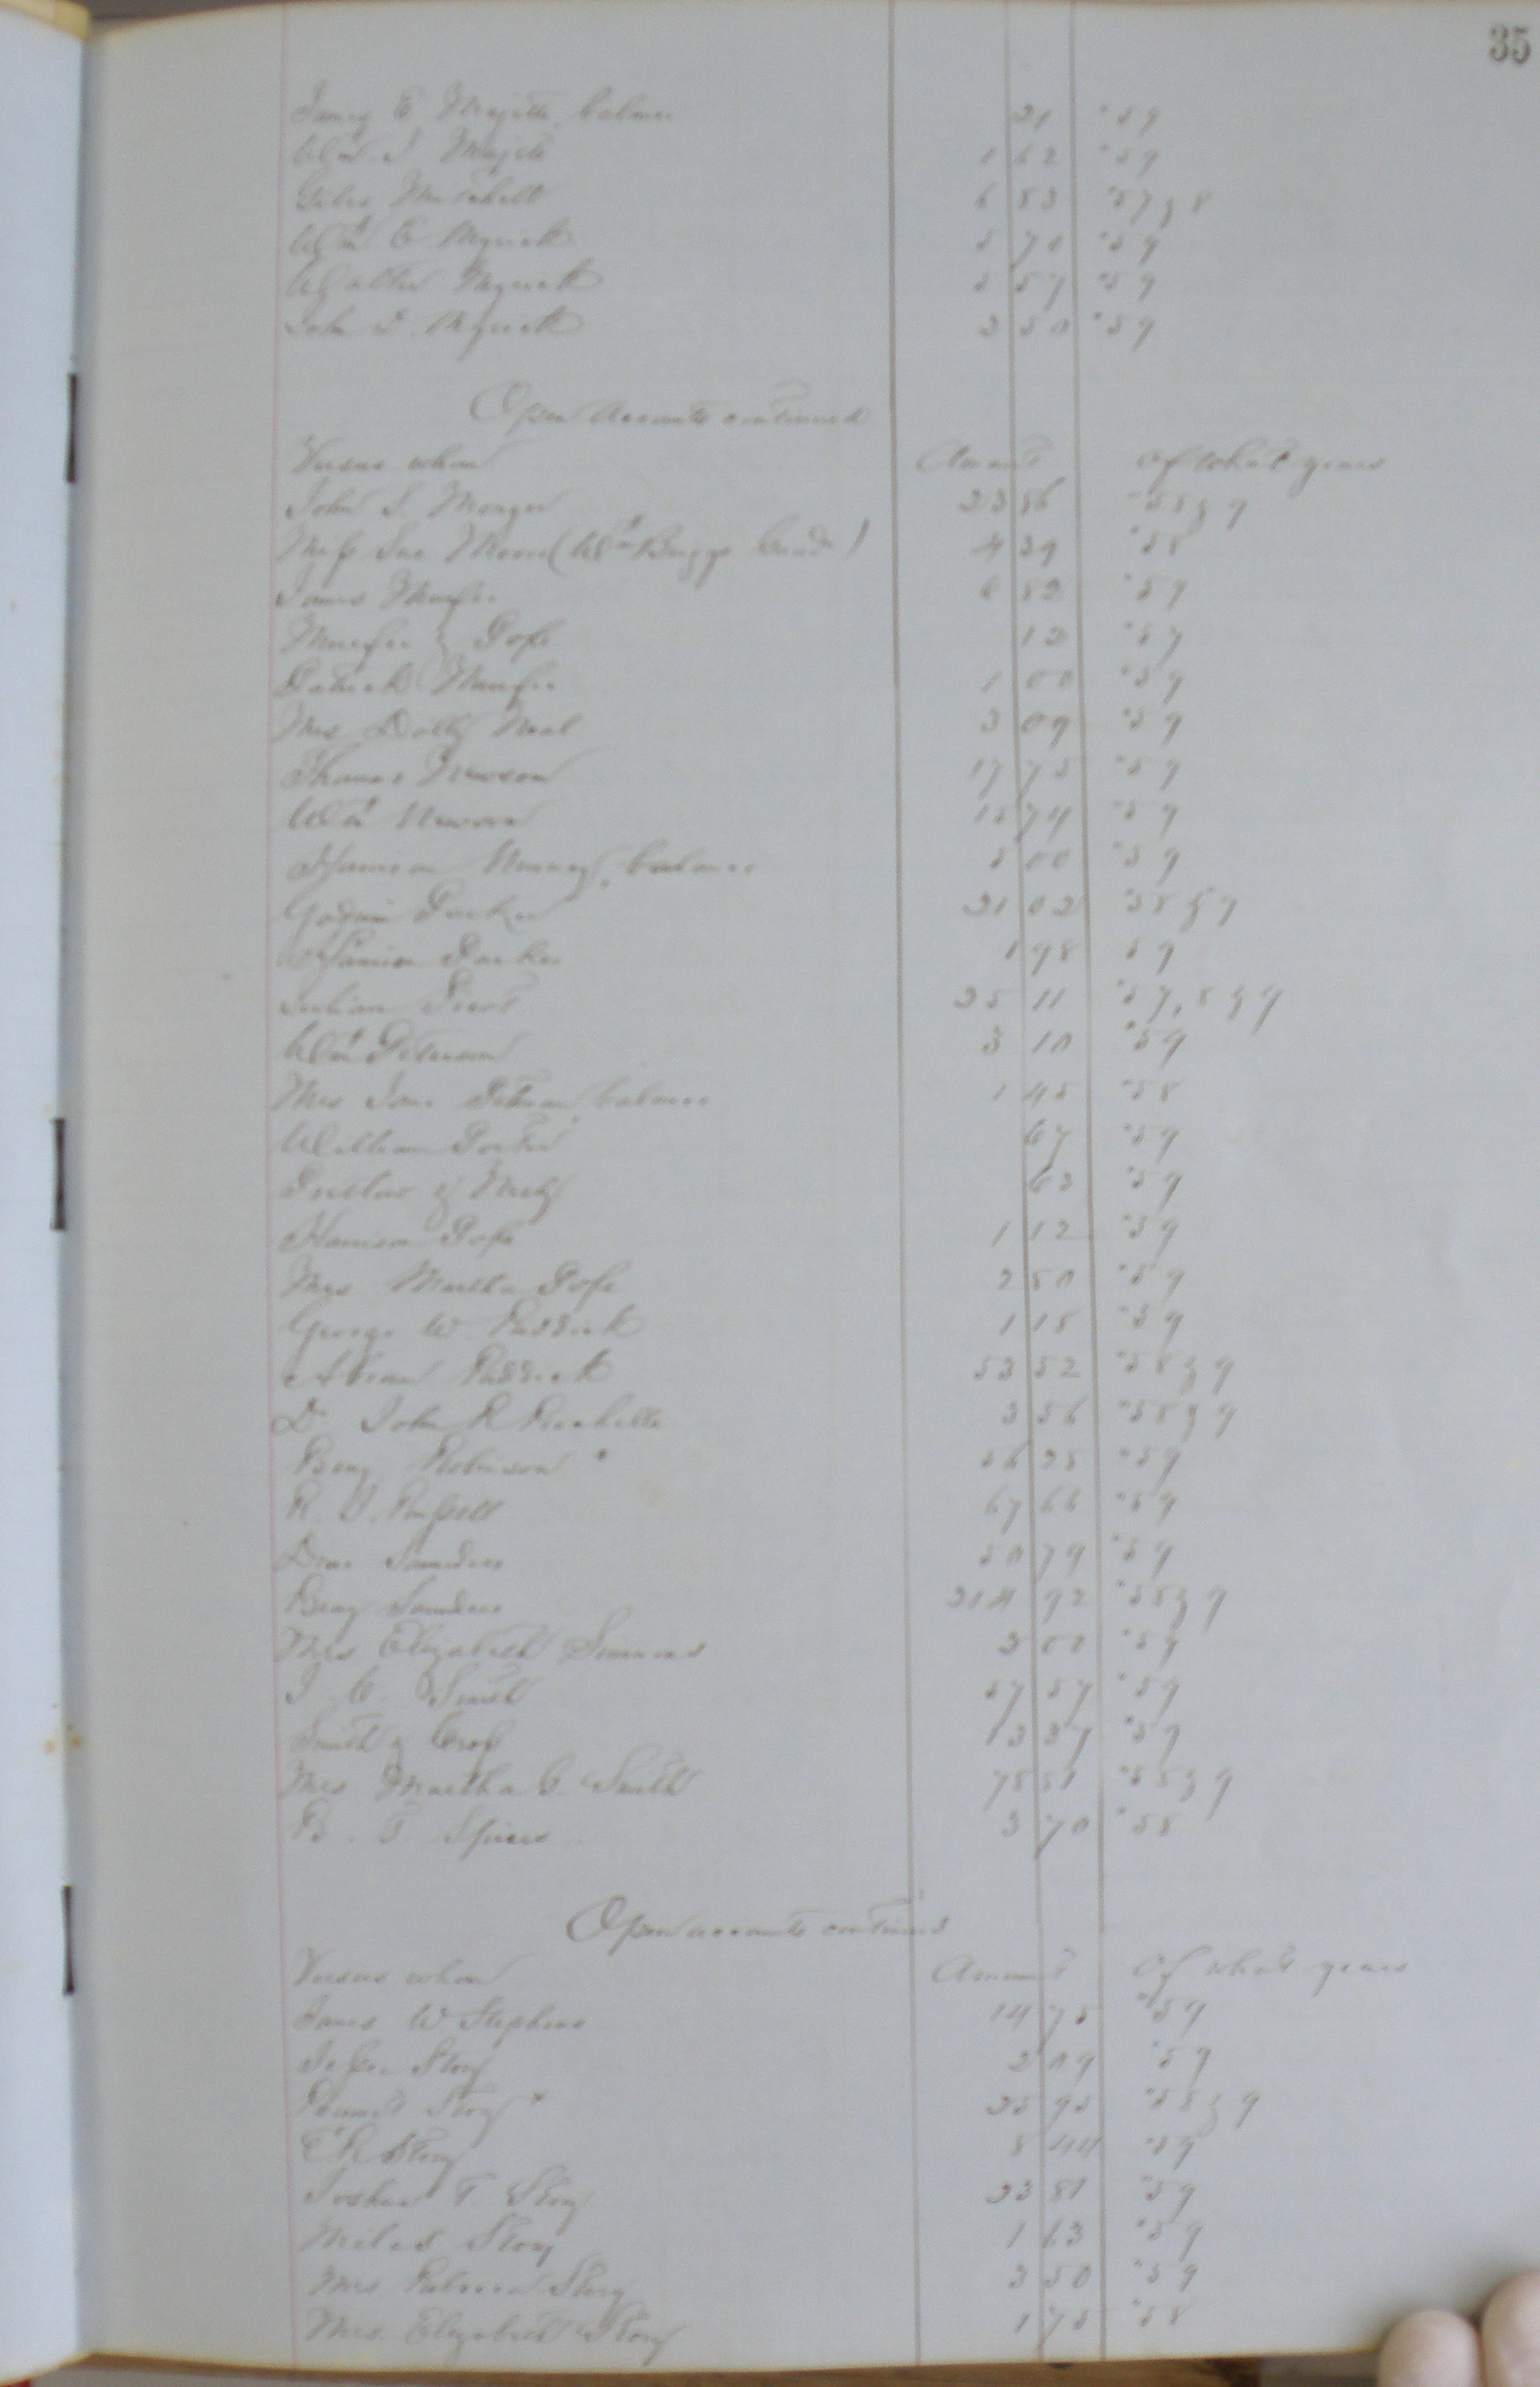 35
James E Majette balance 21 "59
Wm J. Majette 1 62 "59
Giles Mitchell 6 53 "57 & 8
Wm E Myrick 5 70 "59
Walter Myrick 5 57 "59
John D. Myrick 2 50 "59
Open accounts continued
Versus whom Amount of what years
John S. Monger 23 86 "58 & 9
Miss Sue Moore (Wm Briggs Guadn) 4 29 "58
James Murfee 6 82 "59
Murfee & Pope 12 "59
Patrick Murfee 1 00 "59
Mrs Dolly Neal 3 09 "59
Thomas Newsom 17 75 "59
Wm Newsom 15 74 "59
Harrison balance 5 00 "59
Godwin Parker 21 02 "58 & 9
Harrison Parker 1 98 59
Julian 25 11 "57, 8 & 9
Wm Peterson 3 10 "59
Mrs Jane Pitman balance 1 45 "58
William Porter 67 "59
63 "59
Harrison Pope 1 12 "59
Mrs Martha Pope 2 50 "59
George W. Riddick 1 15 "59
Abram Riddick 53 52 "58 & 9
Dr John R Rochelle 3 56 "58 & 9
Benj Robinson * 56 25 "59
R. J. Russell 67 66 "59
Drew Saunders 50 79 "59
Benj Saunders 214 92 "58 & 9
Mrs Elizabeth Simmons 2 00 "59
J. C. Smith 57 57 "59
Smith & Crop 13 37 "59
Mrs Martha C. Smith 75 51 "58 & 9
B. T. Spiers 3 70 "58
Open accounts continued
Versus whom Amount Of what years
James W Stephens 14 75 "59
Jesse Story 2 09 "59
Story * 25 95 "58 & 9
E R Story 8 44 "59
Joshua T Story 23 81 "59
Miles Story 1 63 "59
Mrs Rebecca Story 3 50 "59
Mrs. Elizabeth Story 1 75 "58